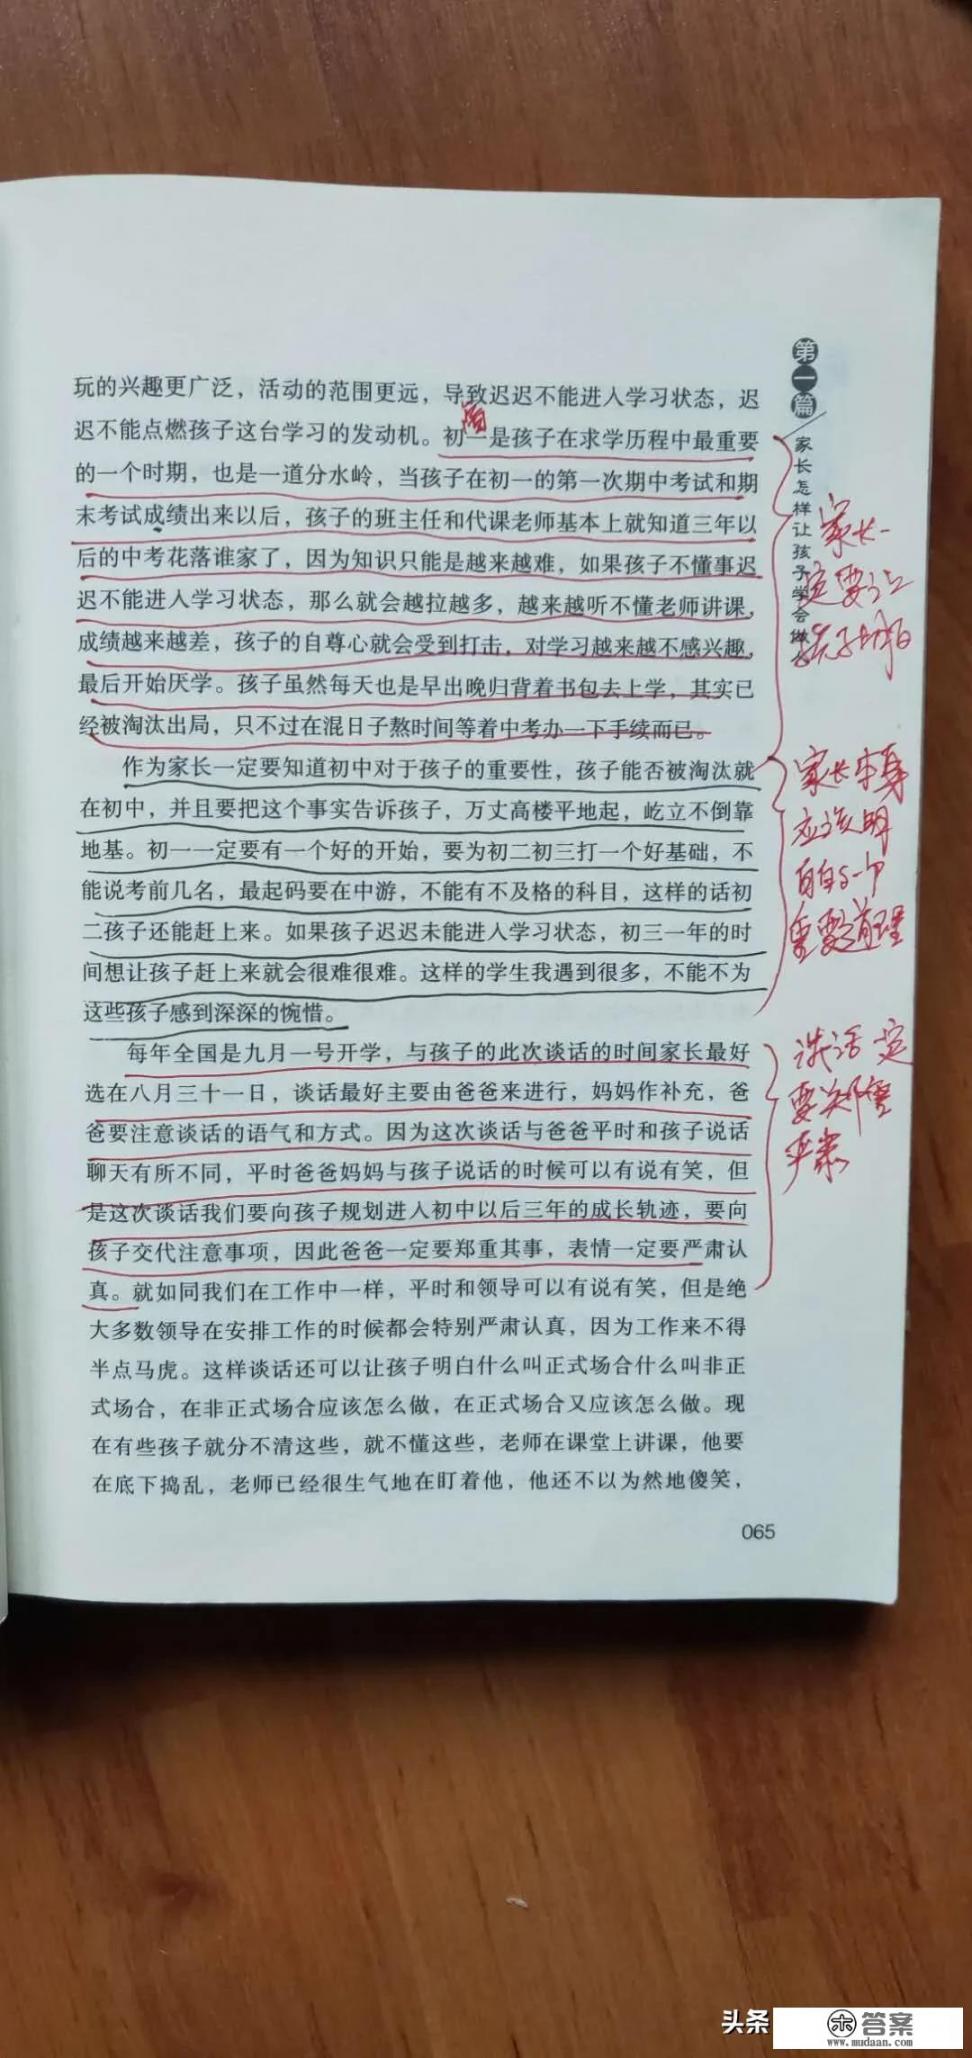 玩的兴趣更广泛，活动的范围更远，导致迟迟不能进入学习状态，迟
迟不能点燃孩子这台学习的发动机。初一是孩子在求学历程中最重要
的一个时期，也是一道分水岭，当孩子在初一的第一次期中考试和期
末考试成绩出来以后，孩子的班主任和代课老师基本上就知道三年以
后的中考花落谁家了，因为知识只能是越来越难，如果孩子不懂事迟
迟不能进入学习状态，那么就会越拉越多，越来越听不懂老师讲课，
成绩越来越差，孩子的自尊心就会受到打击，对学习越来越不感兴趣，
最后开始厌学。孩子虽然每天也是早出晚归背着书包去上学，其实已
经被淘汰出局，只不过在混日子熬时间等着中考办一下手续而已。
作为家长一定要知道初中对于孩子的重要性，孩子能否被淘汰就
在初中，并且要把这个事实告诉孩子，万丈高楼平地起，屹立不倒靠
地基。初一一定要有一个好的开始，要为初二初三打一个好基础，不
能说考前几名，最起码要在中游，不能有不及格的科目，这样的话初
二孩子还能赶上来。如果孩子迟迟未能进入学习状态，初三一年的时
间想让孩子赶上来就会很难很难。这样的学生我遇到很多，不能不为
这些孩子感到深深的惋惜。
每年全国是九月一号开学，与孩子的此次谈话的时间家长最好
选在八月三十一日，谈话最好主要由爸爸来进行，妈妈作补充，爸
爸要注意谈话的语气和方式。因为这次谈话与爸爸平时和孩子说话
聊天有所不同，平时爸爸妈妈与孩子说话的时候可以有说有笑，但
是这次谈话我们要向孩子规划进入初中以后三年的成长轨迹，要向
孩子交代注意事项，因此爸爸一定要郑重其事，表情一定要严肃认
真。就如同我们在工作中一样，平时和领导可以有说有笑，但是绝
大多数领导在安排工作的时候都会特别严肃认真，因为工作来不得
半点马虎。这样谈话还可以让孩子明白什么叫正式场合什么叫非正
式场合，在非正式场合应该怎么做，在正式场合又应该怎么做。现
在有些孩子就分不清这些，就不懂这些，老师在课堂上讲课，他要
在底下捣乱，老师已经很生气地在盯着他，他还不以为然地傻笑，
065
第一篇
家长怎样让孩子学会做
家长一
定要让
孩子明白
家长本身
应该明
白这个
重要道理
谈话一定
要郑重
严肃
头条
答案
www.mudaan.com